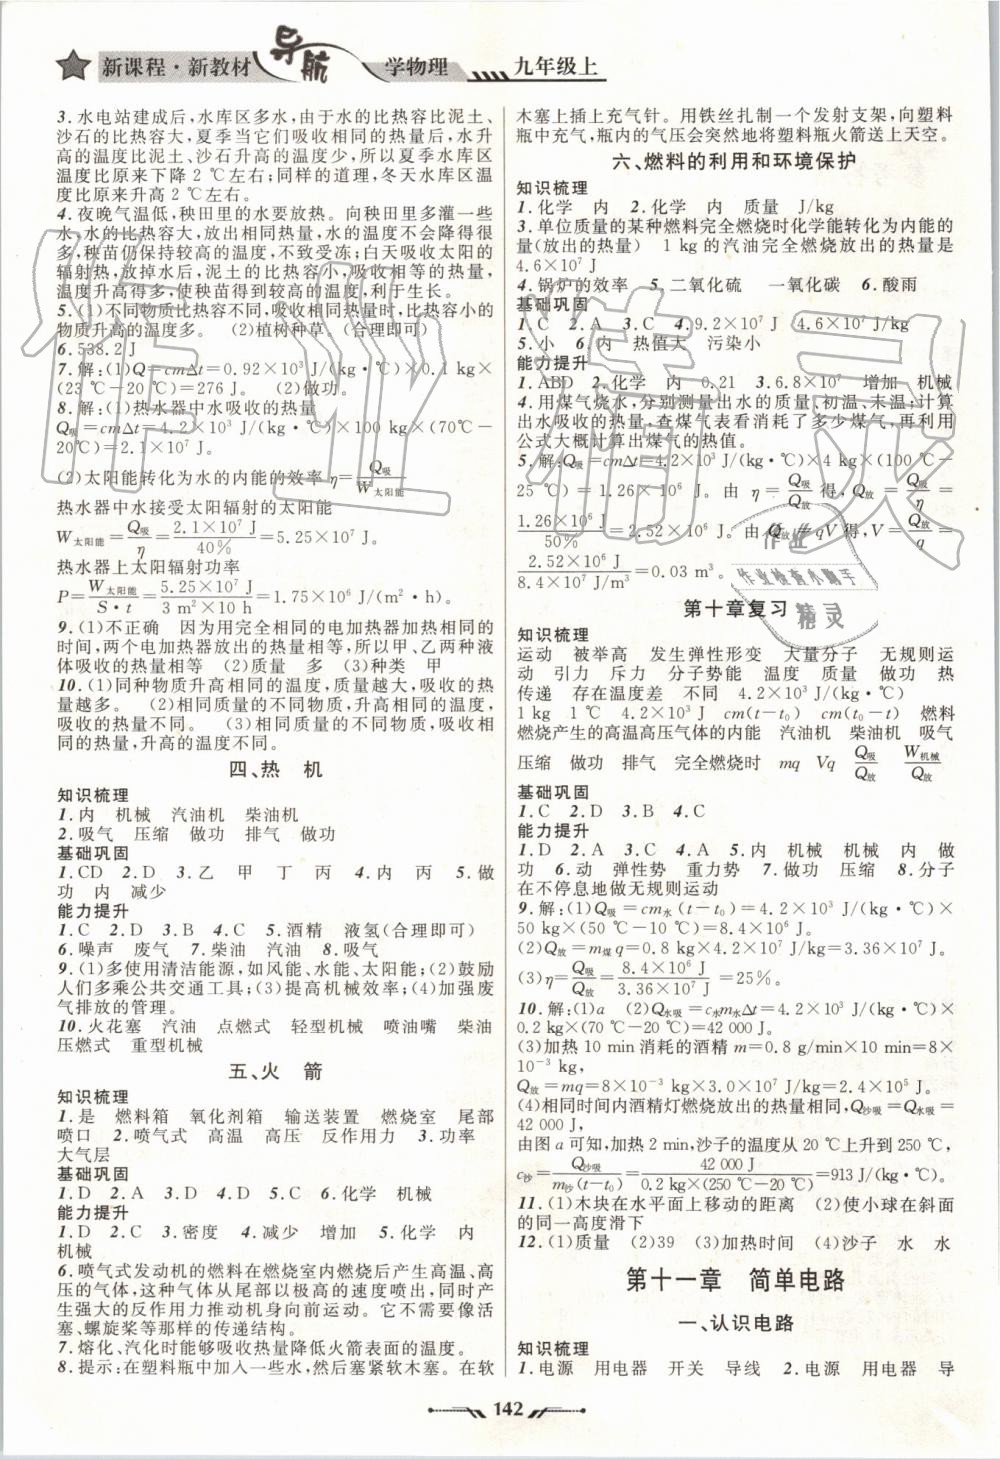 新课程·新教材 导航 学物理 九年级上
3.水电站建成后,水库区多水,由于水的比热容比泥土、
沙石的比热容大,夏季当它们吸收相同的热量后,水升
高的温度比泥土、沙石升高的温度少,所以夏季水库区
温度比原来下降 2 ℃左右;同样的道理,冬天水库区温
度比原来升高 2 ℃左右。
4.夜晚气温低,秧田里的水要放热。向秧田里多灌一些
水,水的比热容大,放热后,水的温度不会降得很
多,秧苗仍保持较高的温度,不致受冻;白天吸收太阳的
辐射热,放掉水后,泥土的比热容比水小,吸收相等的热量,
温度升高得多,使秧苗得到较高的温度,有利于生长。
5.(1)不同物质比热容不同,吸收相同热量时,比热容小的
物质升高的温度多。 (2)植树种草。(合理即可)
6.538.2 J
7.解:(1)Q=cmΔt=0.92×10³ J/(kg·℃)×0.1 kg×
(23 ℃-20 ℃)=276 J。 (2)做功。
8.解:(1)热水器中水吸收的热量
Q吸=cmΔt=4.2×10³ J/(kg·℃)×100 kg×(70℃-
20℃)=2.1×10⁷ J。
(2)太阳能转化为水的内能的效率 η=Q吸/W太阳能
热水器中水接受太阳辐射的太阳能
W太阳能=Q吸/η=2.1×10⁷ J/40%=5.25×10⁷ J。
热水器上太阳辐射功率
P=W太阳能/S·t=5.25×10⁷ J/3 m²×10 h=1.75×10⁶ J/(m²·h)。
9.(1)不正确 因为用完全相同的电加热器加热相同的
时间,两个电加热器放出的热量相等,所以甲、乙两种液
体吸收的热量相等 (2)质量 多 (3)种类 甲
10.(1)同种物质升高相同的温度,质量越大,吸收的热
量越多。 (2)相同质量的不同物质,升高相同的温度,
吸收的热量不同。 (3)相同质量的不同物质,吸收相
同的热量,升高的温度不同。
四、热 机
知识梳理
1.内 机械 汽油机 柴油机
2.吸气 压缩 做功 排气 做功
基础巩固
1.CD 2.D 3.乙 甲 丁 丙 4.内 丙 5.做
功 内 减少
能力提升
1.C 2.D 3.B 4.C 5.酒精 液氢(合理即可)
6.噪声 废气 7.柴油 汽油 8.吸气
9.(1)多使用清洁能源,如风能、水能、太阳能;(2)鼓励
人们多乘公共交通工具;(3)提高机械效率;(4)加强废
气排放的管理。
10.火花塞 汽油 点燃式 轻型机械 喷油嘴 柴油
压燃式 重型机械
五、火 箭
知识梳理
1.是 燃料箱 氧化剂箱 输送装置 燃烧室 尾部
喷口 2.喷气式 高温 高压 反作用力 3.功率
大气层
基础巩固
1.D 2.A 3.D 4.D 5.C 6.化学 机械
能力提升
1.D 2.C 3.密度 4.减少 增加 5.化学 内
机械
6.喷气式发动机的燃料在燃烧室内燃烧后产生高温、高
压的气体,这种气体从尾部以极高的速度喷出,同时产
生强大的反作用力推动机身向前运动。它不需要像活
塞、螺旋桨等那样的传递结构。
7.熔化、汽化时能够吸收热量降低火箭表面的温度。
8.提示:在塑料瓶中加入一些水,然后塞紧软木塞。在软
木塞上插上充气针。用铁丝扎制一个发射支架,向塑料
瓶中充气,瓶内的气压会突然地将塑料瓶火箭送上天空。
六、燃料的利用和环境保护
知识梳理
1.化学 内 2.化学 内 质量 J/kg
3.单位质量的某种燃料完全燃烧时化学能转化为内能的
量(放出的热量) 1 kg的汽油完全燃烧放出的热量是
4.6×10⁷ J
4.锅炉的效率 5.二氧化硫 一氧化碳 6.酸雨
基础巩固
1.C 2.A 3.C 4.9.2×10⁷ J 4.6×10⁷ J/kg
5.小 6.内 热值大 污染小
能力提升
1.ABD 2.化学 内 0.21 3.6.8×10⁷ 增加 机械
4.用煤气烧水,分别测量出水的质量、初温、末温;计算
出水吸收的热量,查煤气表看消耗了多少煤气,再利用
公式大概计算出煤气的热值。
5.解:Q吸=cmΔt=4.2×10³ J/(kg·℃)×4 kg×(100 ℃-
25 ℃)=1.26×10⁶ J。由 η=Q吸/Q放 得,Q放=Q吸/η=
1.26×10⁶ J/50%=2.52×10⁶ J。由 Q放=qV 得,V=Q放/q=
2.52×10⁶ J/8.4×10⁷ J/m³=0.03 m³。
第十章复习
知识梳理
运动 被举高 发生弹性形变 大量分子 无规则运
动 引力 斥力 分子势能 温度 质量 做功 热
传递 存在温度差 不同 4.2×10³ J/(kg·℃)
1 kg 1℃ 4.2×10³ J cm(t-t₀) cm(t₀-t) 燃料
燃烧产生的高温高压气体的内能 汽油机 柴油机 吸气
压缩 做功 排气 完全燃烧时 mq Vq Q吸/Q放 W机械/Q放
基础巩固
1.C 2.D 3.B 4.C
能力提升
1.D 2.A 3.C 4.A 5.内 机械 机械 内 做
功 6.动 弹性势 重力势 7.做功 压缩 8.分子
在不停息地做无规则运动
9.解:(1)Q吸=cm水(t-t₀)=4.2×10³ J/(kg·℃)×
50 kg×(50 ℃-10 ℃)=8.4×10⁶ J。
(2)Q放=m煤q=0.8 kg×4.2×10⁷ J/kg=3.36×10⁷ J。
(3)η=Q吸/Q放=8.4×10⁶ J/3.36×10⁷ J=25%。
10.解:(1)a (2)Q水吸=c水m水Δt=4.2×10³ J/(kg·℃)×
0.2 kg×(70 ℃-20 ℃)=42 000 J。
(3)加热 10 min 消耗的酒精 m=0.8 g/min×10 min=8×
10⁻³ kg,
Q放=mq=8×10⁻³ kg×3×10⁷ J/kg=2.4×10⁵ J。
(4)相同时间内酒精灯燃烧放出的热量相同,Q沙吸=Q水吸=
42 000 J,
由图 a 可知,加热 2 min,沙子的温度从 20 ℃上升到 250 ℃,
c沙=Q沙吸/m沙(t-t₀)=42 000 J/0.2 kg×(250 ℃-20 ℃)=913 J/(kg·℃)。
11.(1)木块在水平面上移动的距离 (2)使小球在斜面
的同一高度滑下
12.(1)质量 (2)39 (3)加热时间 (4)沙子 水 水
第十一章 简单电路
一、认识电路
知识梳理
1.电源 用电器 开关 导线 2.电源 用电器 导
142
作业精灵
作业
作业检查小助手
精灵